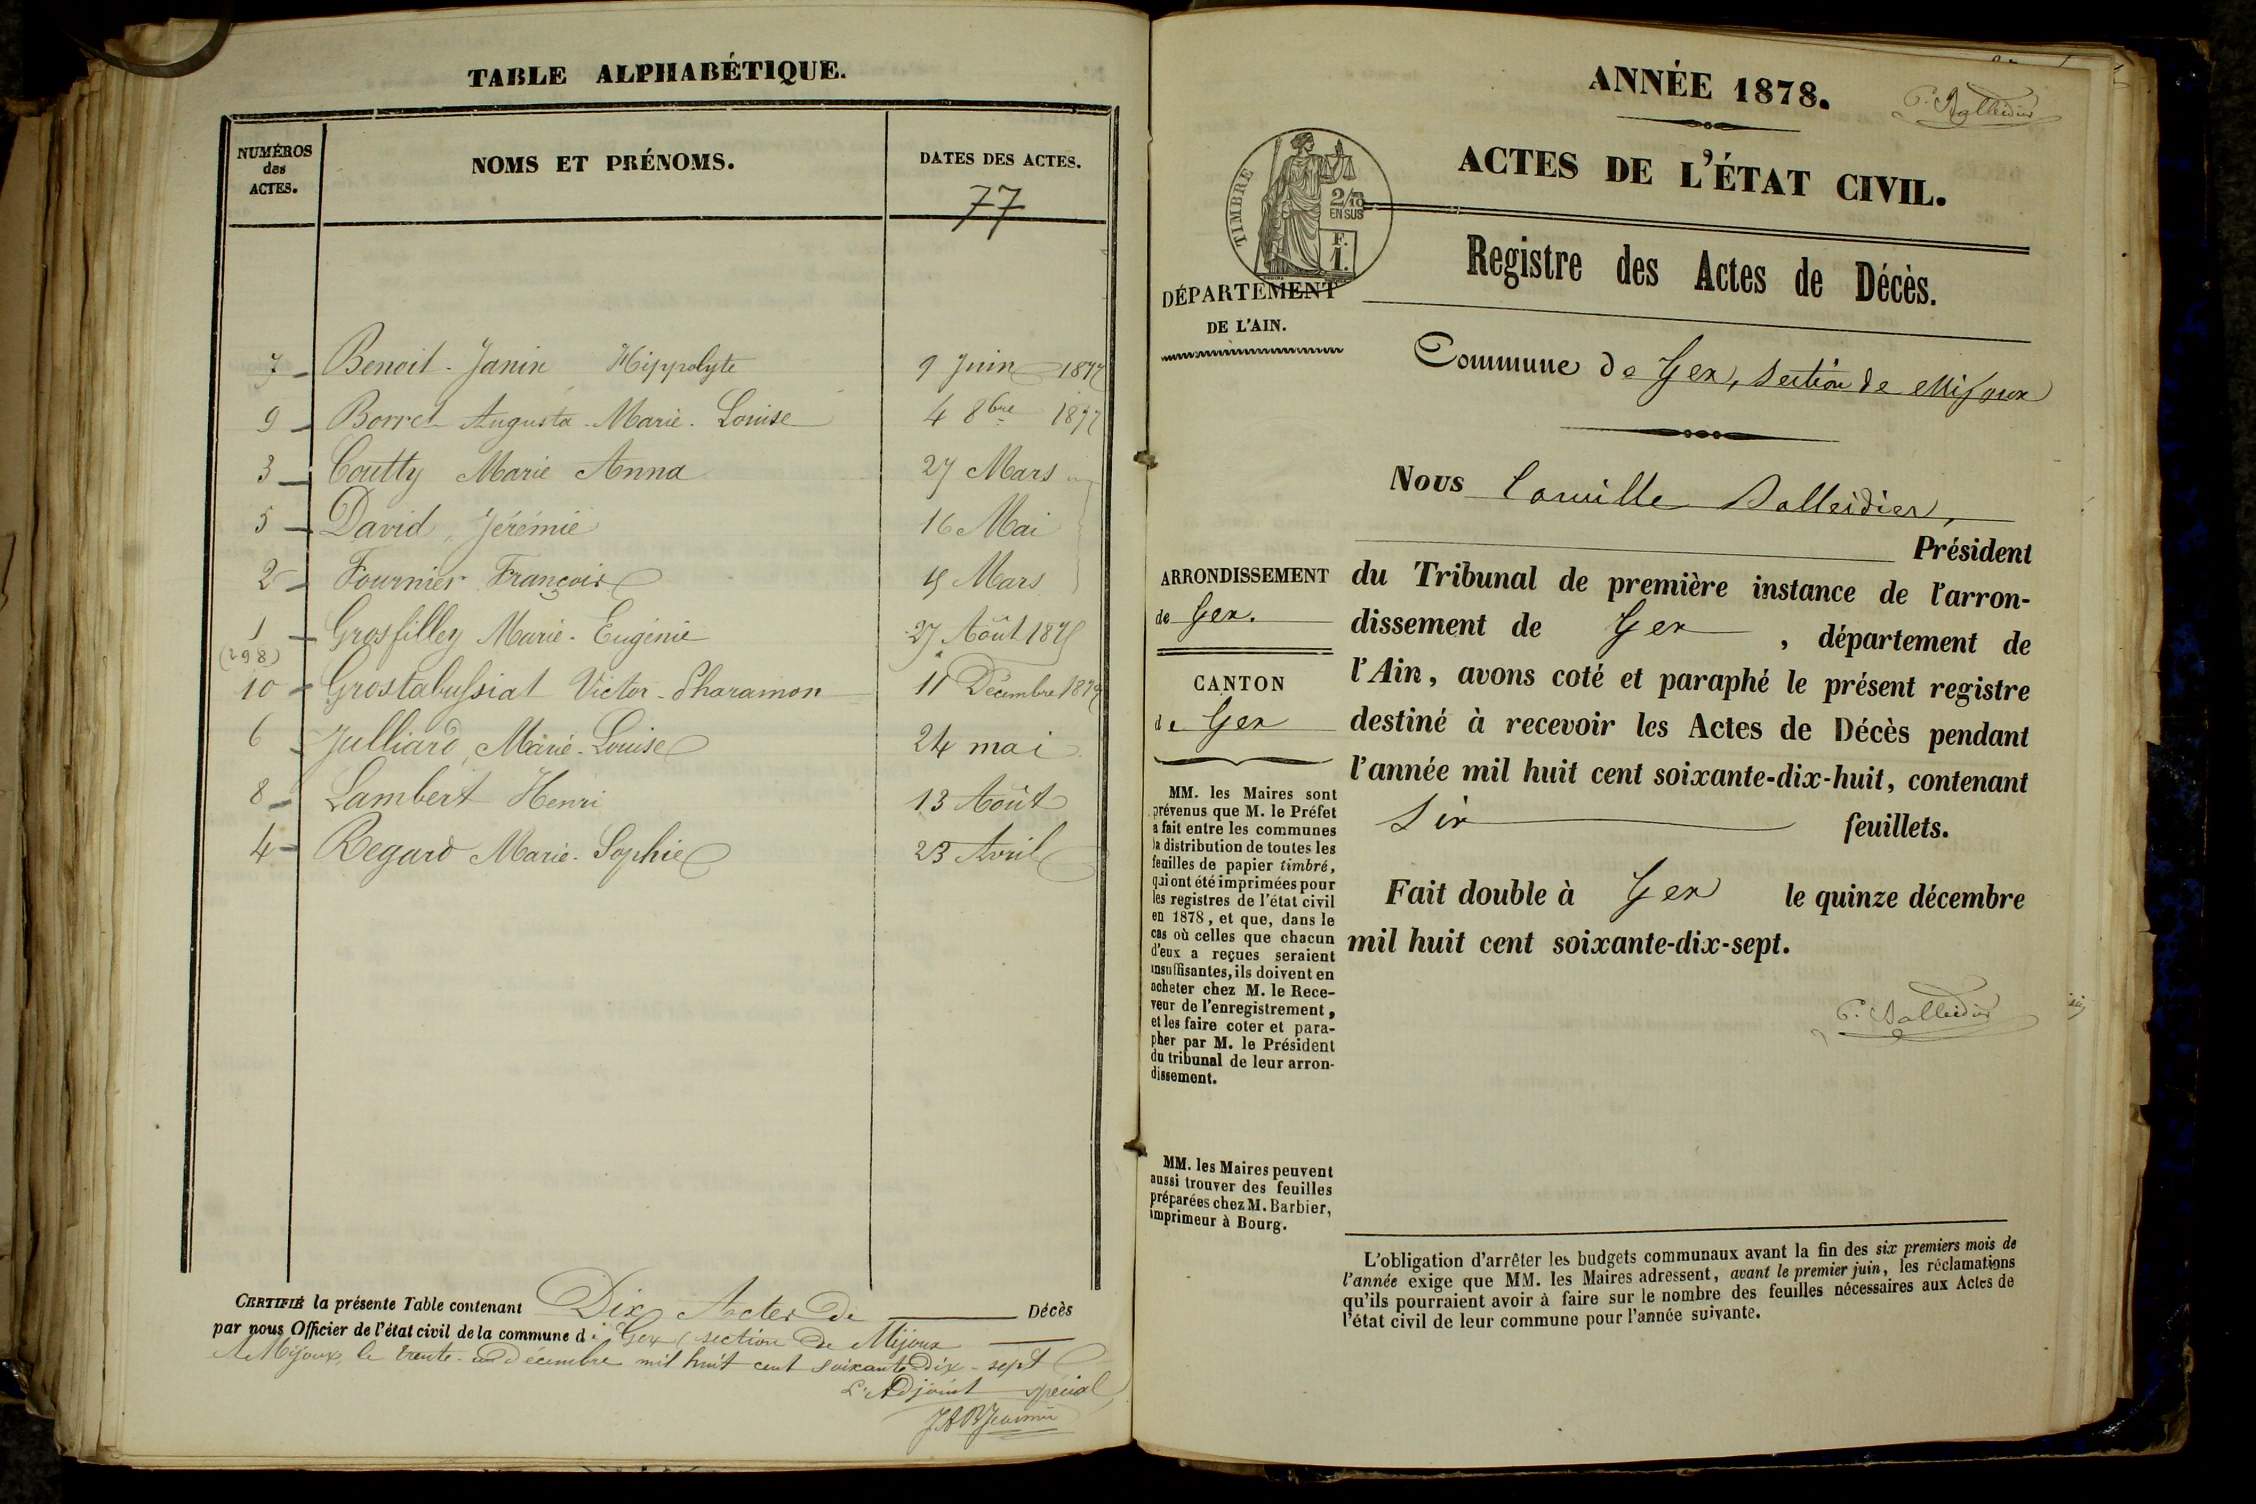 TABLE ALPHABÉTIQUE.
NUMÉROS
des
ACTES.
NOMS ET PRÉNOMS.
DATES DES ACTES.
77
7 - Benoit-Janin Hippolyte 9 Juin 1877
9 - Borrel Augusta-Marie-Louise 4 8bre 1877
3 - Coutty Marie Anna 27 Mars
5 - David, Jérémie 16 Mai
2 - Fournier François Mars
1 - Grosfilley Marie-Eugénie 27 Août
(298)
10 - Grostabussiat Victor-Pharamon 11 Décembre
6 - Julliard, Marie-Louise 24 mai
8 - Lambert Henri 13 Août
4 - Regard Marie-Sophie 23 Avril
CERTIFIÉ la présente Table contenant Dix Actes de Décès
par nous Officier de l'état civil de la commune de Gex, section de Mijoux
A Mijoux, le trente-un décembre mil huit cent soixante-dix-sept
L'Adjoint spécial,
ANNÉE 1878.
ACTES DE L'ÉTAT CIVIL.
TIMBRE
2/10
EN SUS
F.
1.
Registre des Actes de Décès.
DÉPARTEMENT
DE L'AIN.
Commune de Gex, section de Mijoux
Nous Camille
Président
du Tribunal de première instance de l'arron-
dissement de Gex, département de
l'Ain, avons coté et paraphé le présent registre
destiné à recevoir les Actes de Décès pendant
l'année mil huit cent soixante-dix-huit, contenant
six feuillets.
Fait double à Gex le quinze décembre
mil huit cent soixante-dix-sept.
ARRONDISSEMENT
de Gex.
CANTON
de Gex
MM. les Maires sont
prévenus que M. le Préfet
a fait entre les communes
la distribution de toutes les
feuilles de papier timbré,
qui ont été imprimées pour
les registres de l'état civil
en 1878, et que, dans le
cas où celles que chacun
d'eux a reçues seraient
insuffisantes, ils doivent en
acheter chez M. le Rece-
veur de l'enregistrement,
et les faire coter et para-
pher par M. le Président
du tribunal de leur arron-
dissement.
MM. les Maires peuvent
aussi trouver des feuilles
préparées chez M. Barbier,
imprimeur à Bourg.
L'obligation d'arrêter les budgets communaux avant la fin des six premiers mois de
l'année exige que MM. les Maires adressent, avant le premier juin, les réclamations
qu'ils pourraient avoir à faire sur le nombre des feuilles nécessaires aux Actes de
l'état civil de leur commune pour l'année suivante.